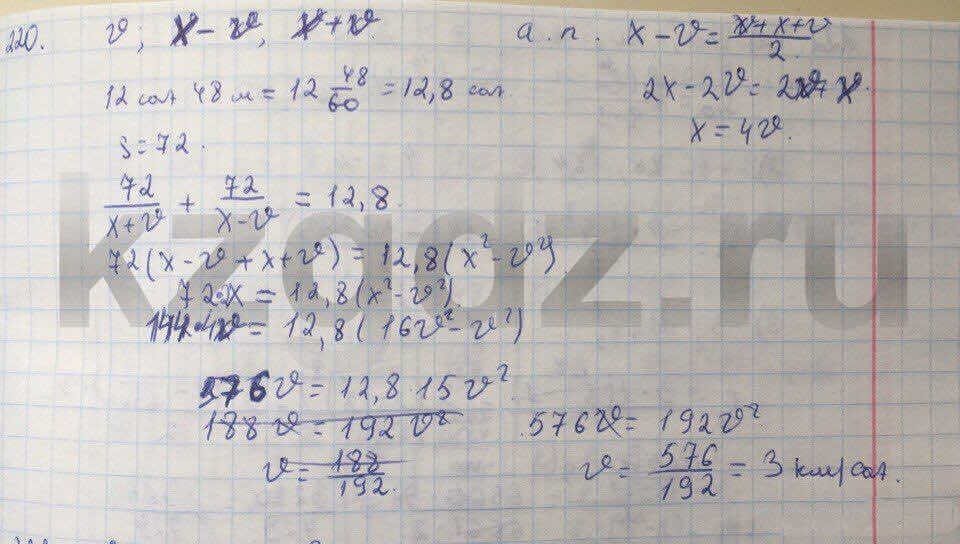 220. v; x-v, x+v. а.п. x-v = (v+x+v)/2
12 сағ 48 м = 12 48/60 = 12,8 сағ
2x-2v = 2v+x.
x = 4v.
s = 72.
72/(x+v) + 72/(x-v) = 12,8.
72(x-v+x+v) = 12,8(x²-v²).
72·2x = 12,8(x²-v²)
144·4v = 12,8(16v²-v²)
576v = 12,8·15v².
188v = 192v²
576v = 192v²
v = 188/192.
v = 576/192 = 3 км/сағ.
kzgdz.ru